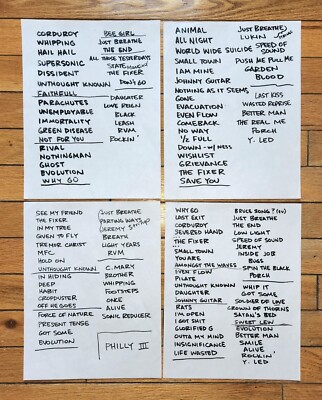 CORDUROY
WHIPPING
HAIL HAIL
SUPERSONIC
DISSIDENT
UNTHOUGHT KNOWN
FAITHFULL
PARACHUTES
UNEMPLOYABLE
IMMORTALITY
GREEN DISEASE
NOT FOR YOU
RIVAL
NOTHINGMAN
GHOST
EVOLUTION
WHY GO
BEE GIRL
JUST BREATHE
THE END
ALL THOSE YESTERDAYS
THE FIXER
DON'T GO
DAUGHTER
LOVE REIGN
BLACK
LEASH
RVM
ROCKIN'
ANIMAL
ALL NIGHT
WORLD WIDE SUICIDE
SMALL TOWN
I AM MINE
JOHNNY GUITAR
NOTHING AS IT SEEMS
GONE
EVACUATION
EVEN FLOW
COMEBACK
NO WAY
1/2 FULL
DOWN
WISHLIST
GRIEVANCE
THE FIXER
SAVE YOU
JUST BREATHE
LUKIN
SPEED OF SOUND
PUSH ME PULL ME
GARDEN
BLOOD
LAST KISS
WASTED REPRISE
BETTER MAN
THE REAL ME
PORCH
Y. LED
SEE MY FRIEND
THE FIXER
IN MY TREE
GIVEN TO FLY
TREMOR CHRIST
MFC
HOLD ON
UNTHOUGHT KNOWN
IN HIDING
DEEP
HABIT
CROPDUSTER
OFF HE GOES
FORCE OF NATURE
PRESENT TENSE
GOT SOME
EVOLUTION
JUST BREATHE
PARTING WAYS
JEREMY
BREATH
LIGHT YEARS
RVM
C. MARY
BROTHER
WHIPPING
FOOTSTEPS
ONCE
ALIVE
SONIC REDUCER
PHILLY III
WHY GO
LAST EXIT
CORDUROY
SEVERED HAND
THE FIXER
SMALL TOWN
YOU ARE
AMONGST THE WAVES
EVEN FLOW
PILATE
UNTHOUGHT KNOWN
DAUGHTER
JOHNNY GUITAR
RATS
I'M OPEN
I GOT SHIT
GLORIFIED G
OUTA MY MIND
INSIGNIFICANCE
LIFE WASTED
BRUCE SONG?
JUST BREATHE
THE END
LOW LIGHT
SPEED OF SOUND
JEREMY
INSIDE JOB
BUGS
SPIN THE BLACK
PORCH
WHIP IT
GOT SOME
SOLDIER OF LOVE
CROWN OF THORNS
SATAN'S BED
SWEET LEW
EVOLUTION
BETTER MAN
SMILE
ALIVE
ROCKIN'
Y. LED